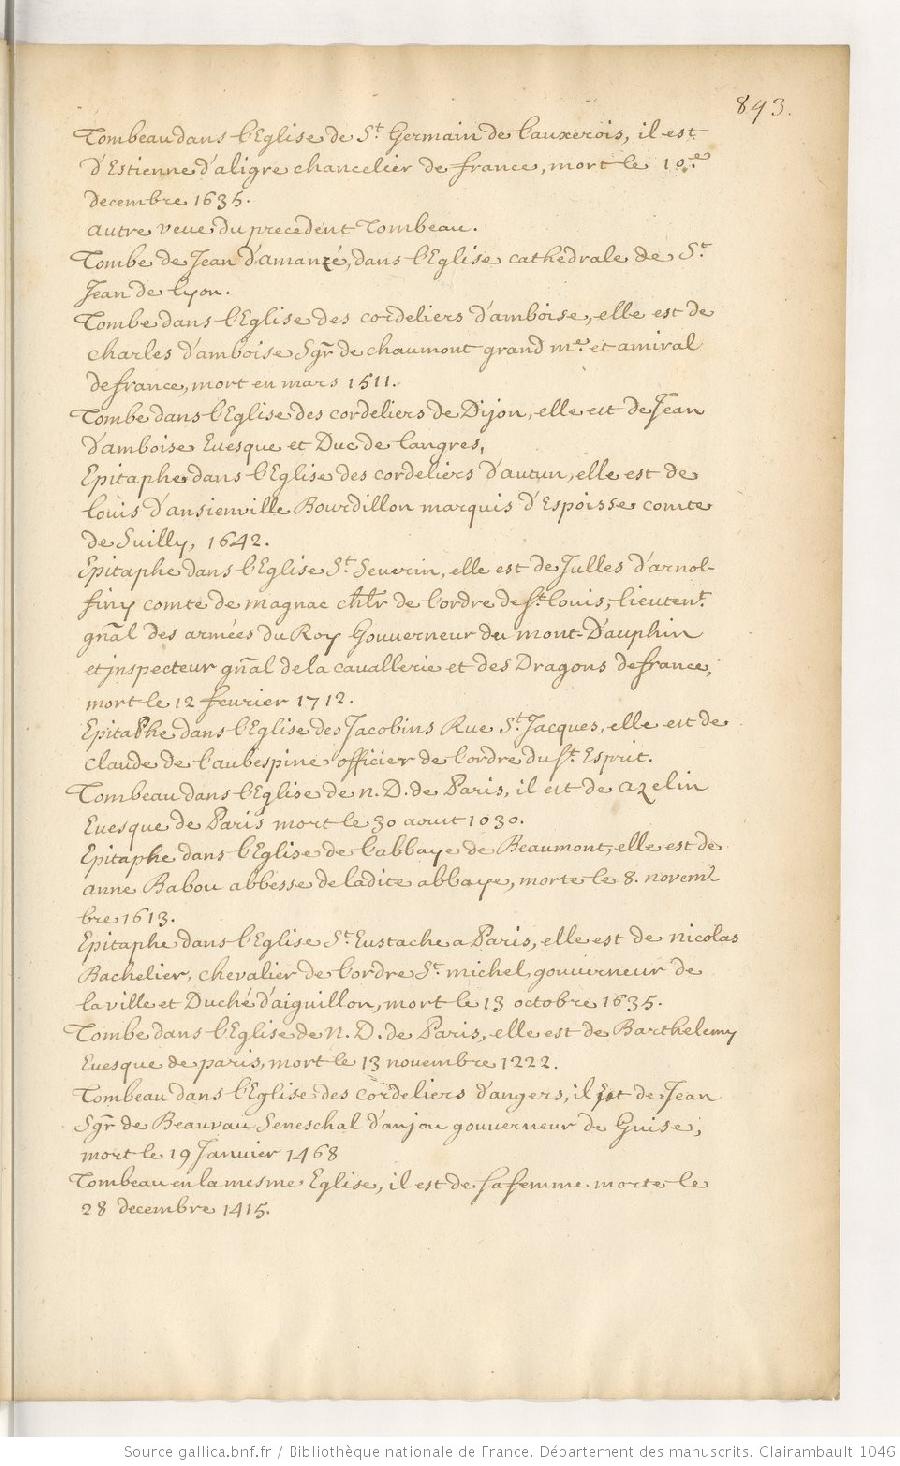 893.
Tombeau dans l'Eglise de St Germain de l'auxerois, il est
d'Estienne d'aligre chancelier de france, mort le
decembre 1635.
autre veue du precedent Tombeau.
Tombe de Jean d'amanzé, dans l'Eglise cathedrale de St
Jean de Lyon.
Tombe dans l'Eglise des cordeliers d'amboise, elle est de
charles d'amboise Sgr de chaumont grand me et amiral
de france, mort en mars 1511.
Tombe dans l'Eglise des cordeliers de Dijon, elle est de Jean
d'amboise Evesque et Duc de langres,
Epitaphe dans l'Eglise des cordeliers d'autun, elle est de
louis d'ansienville Bourdillon marquis d'Espoisse comte
de Suilly, 1642.
Epitaphe dans l'Eglise St Severin, elle est de Julles d'arnol-
finy comte de magnac chlr de l'ordre de St louis, lieutent
gnãl des armées du Roy Gouverneur du mont-Dauphin
et jnspecteur gnãl de la cavallerie et des Dragons de france,
mort le 12 fevrier 1712.
Epitaphe dans l'Eglise des Jacobins Rue St Jacques, elle est de
claude de l'aubespine officier de l'ordre du St Esprit.
Tombeau dans l'Eglise de N. D. de Paris, il est de azelin
Evesque de Paris mort le 30 aout 1030.
Epitaphe dans l'Eglise de l'abbaye de Beaumont, elle est de
anne Babou abbesse de ladite abbaye, morte le 8. novem
bre 1613.
Epitaphe dans l'Eglise St Eustache a Paris, elle est de nicolas
Bachelier, chevalier de l'ordre St michel, gouverneur de
la ville et Duché d'aiguillon, mort le 13 octobre 1635.
Tombe dans l'Eglise de N. D. de Paris, elle est de Barthelemy
Evesque de paris, mort le 13 novembre 1222.
Tombeau dans l'Eglise des cordeliers d'angers, il est de Jean
Sgr de Beauvau Seneschal d'anjou gouverneur de Guise,
mort le 19 Janvier 1468
Tombeau en la mesme Eglise, il est de sa femme morte le
28 decembre 1415.
Source gallica.bnf.fr / Bibliothèque nationale de France. Département des manuscrits. Clairambault 1046